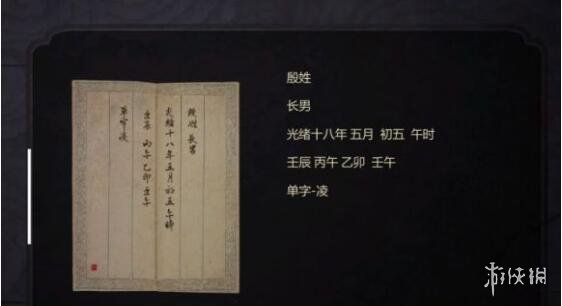 殷姓 長男
光緒十八年五月初五午時
壬辰 丙午 乙卯 壬午
單字凌
殷姓
长男
光绪十八年 五月 初五 午时
壬辰 丙午 乙卯 壬午
单字-凌
游侠网